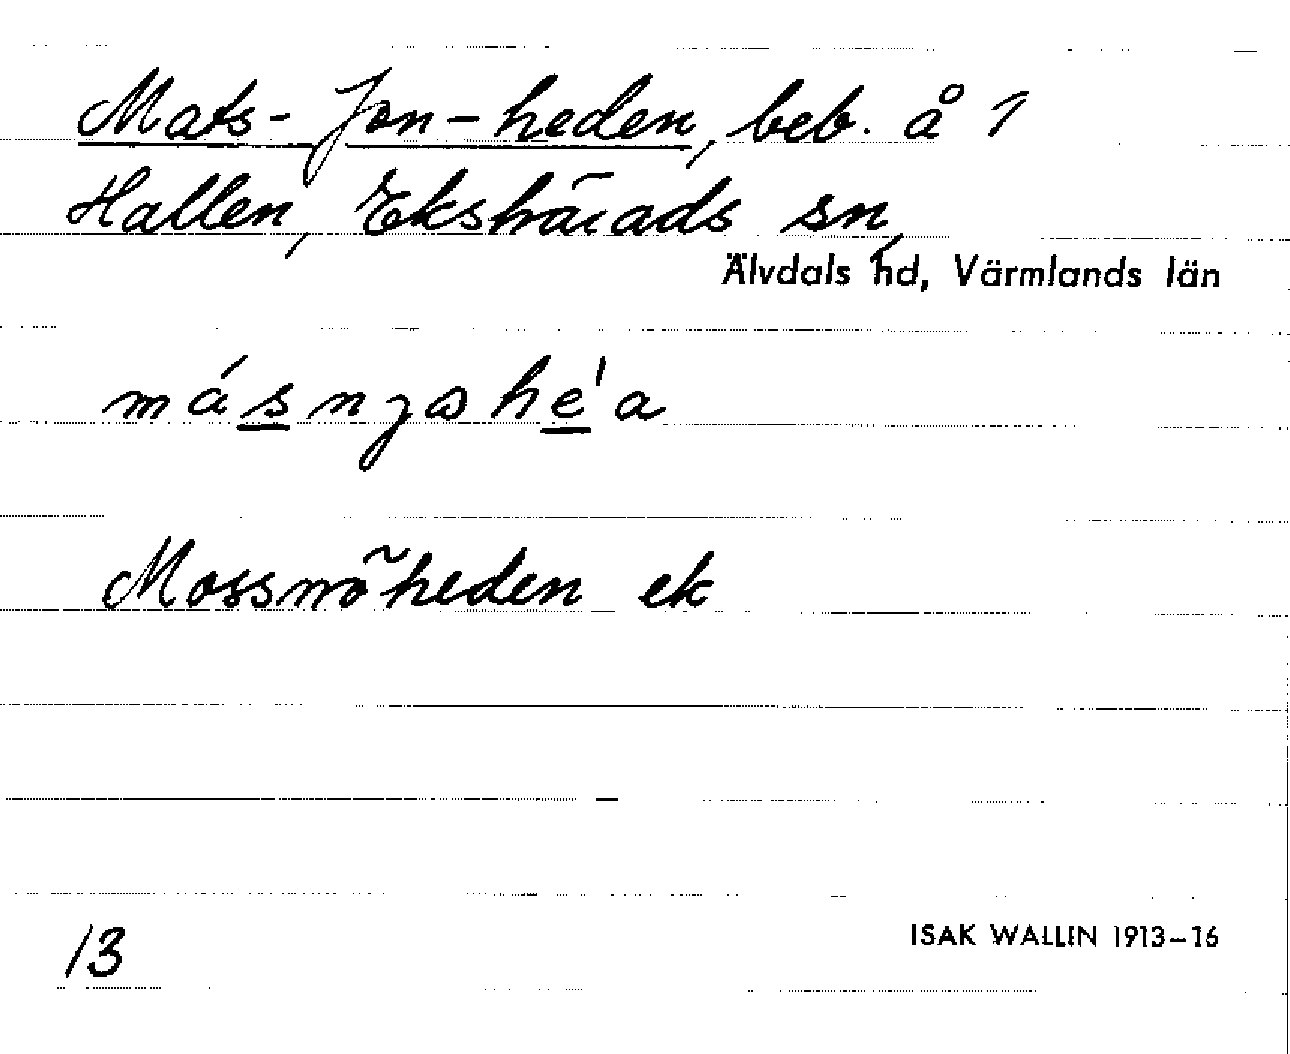 Mats-Jon-heden, beb. å 1
Hallen, Ekshärads sn,
Älvdals hd, Värmlands län
Mossnöheden ek
13
ISAK WALLIN 1913–16